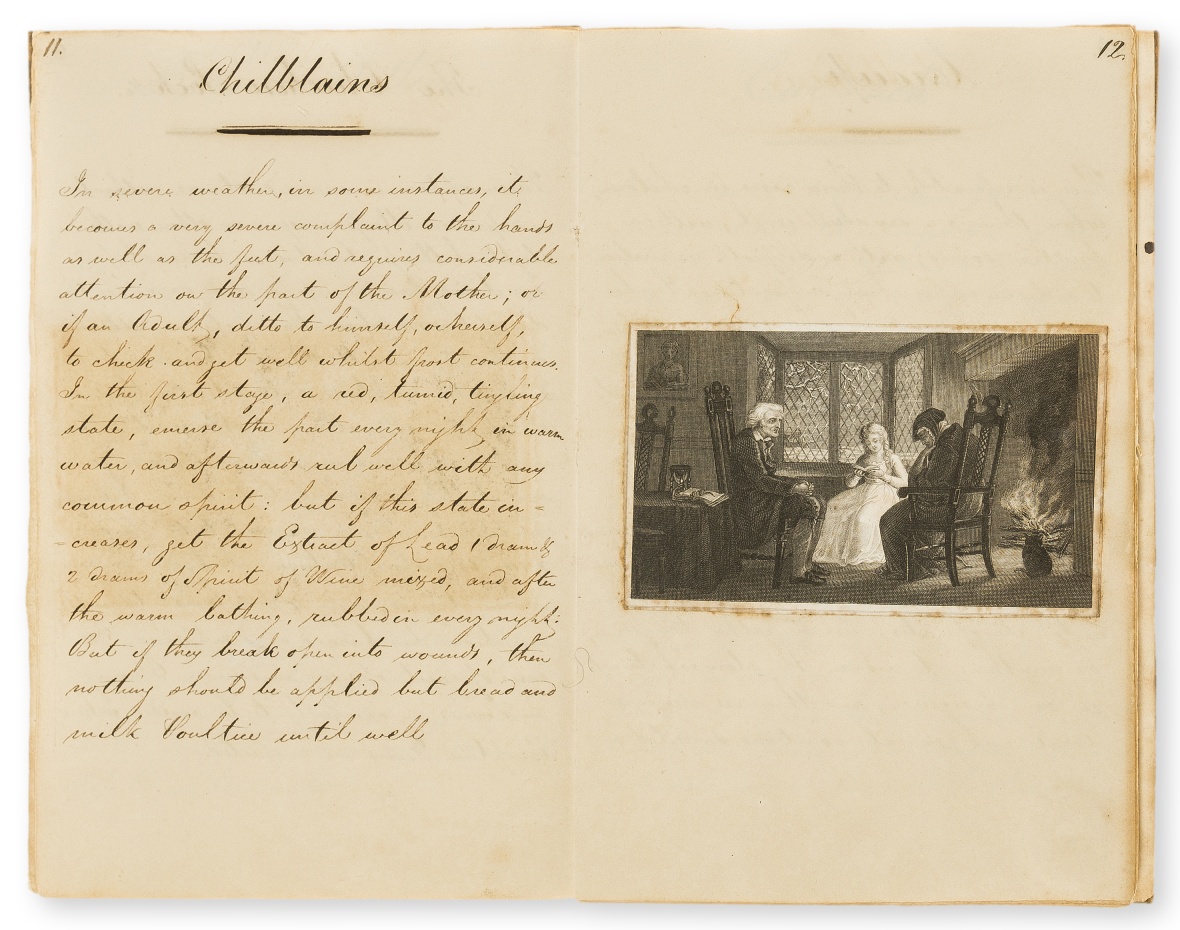 11.
Chilblains
In severe weather, in some instances, it
becomes a very severe complaint to the hands
as well as the feet, and requires considerable
attention on the part of the Mother; or
if an Adult, ditto to himself, or herself,
to check and get well whilst frost continues.
In the first stage, a red, tumid, tingling
state, emerse the part every night in warm
water, and afterwards rub well with any
common spirit: but if this state in=
=creases, get the Extract of Lead 1 dram &
2 drams of Spirit of Wine mixed, and after
the warm bathing, rubbed in every night.
But if they break open into wounds, then
nothing should be applied but bread and
milk Poultice until well
12.